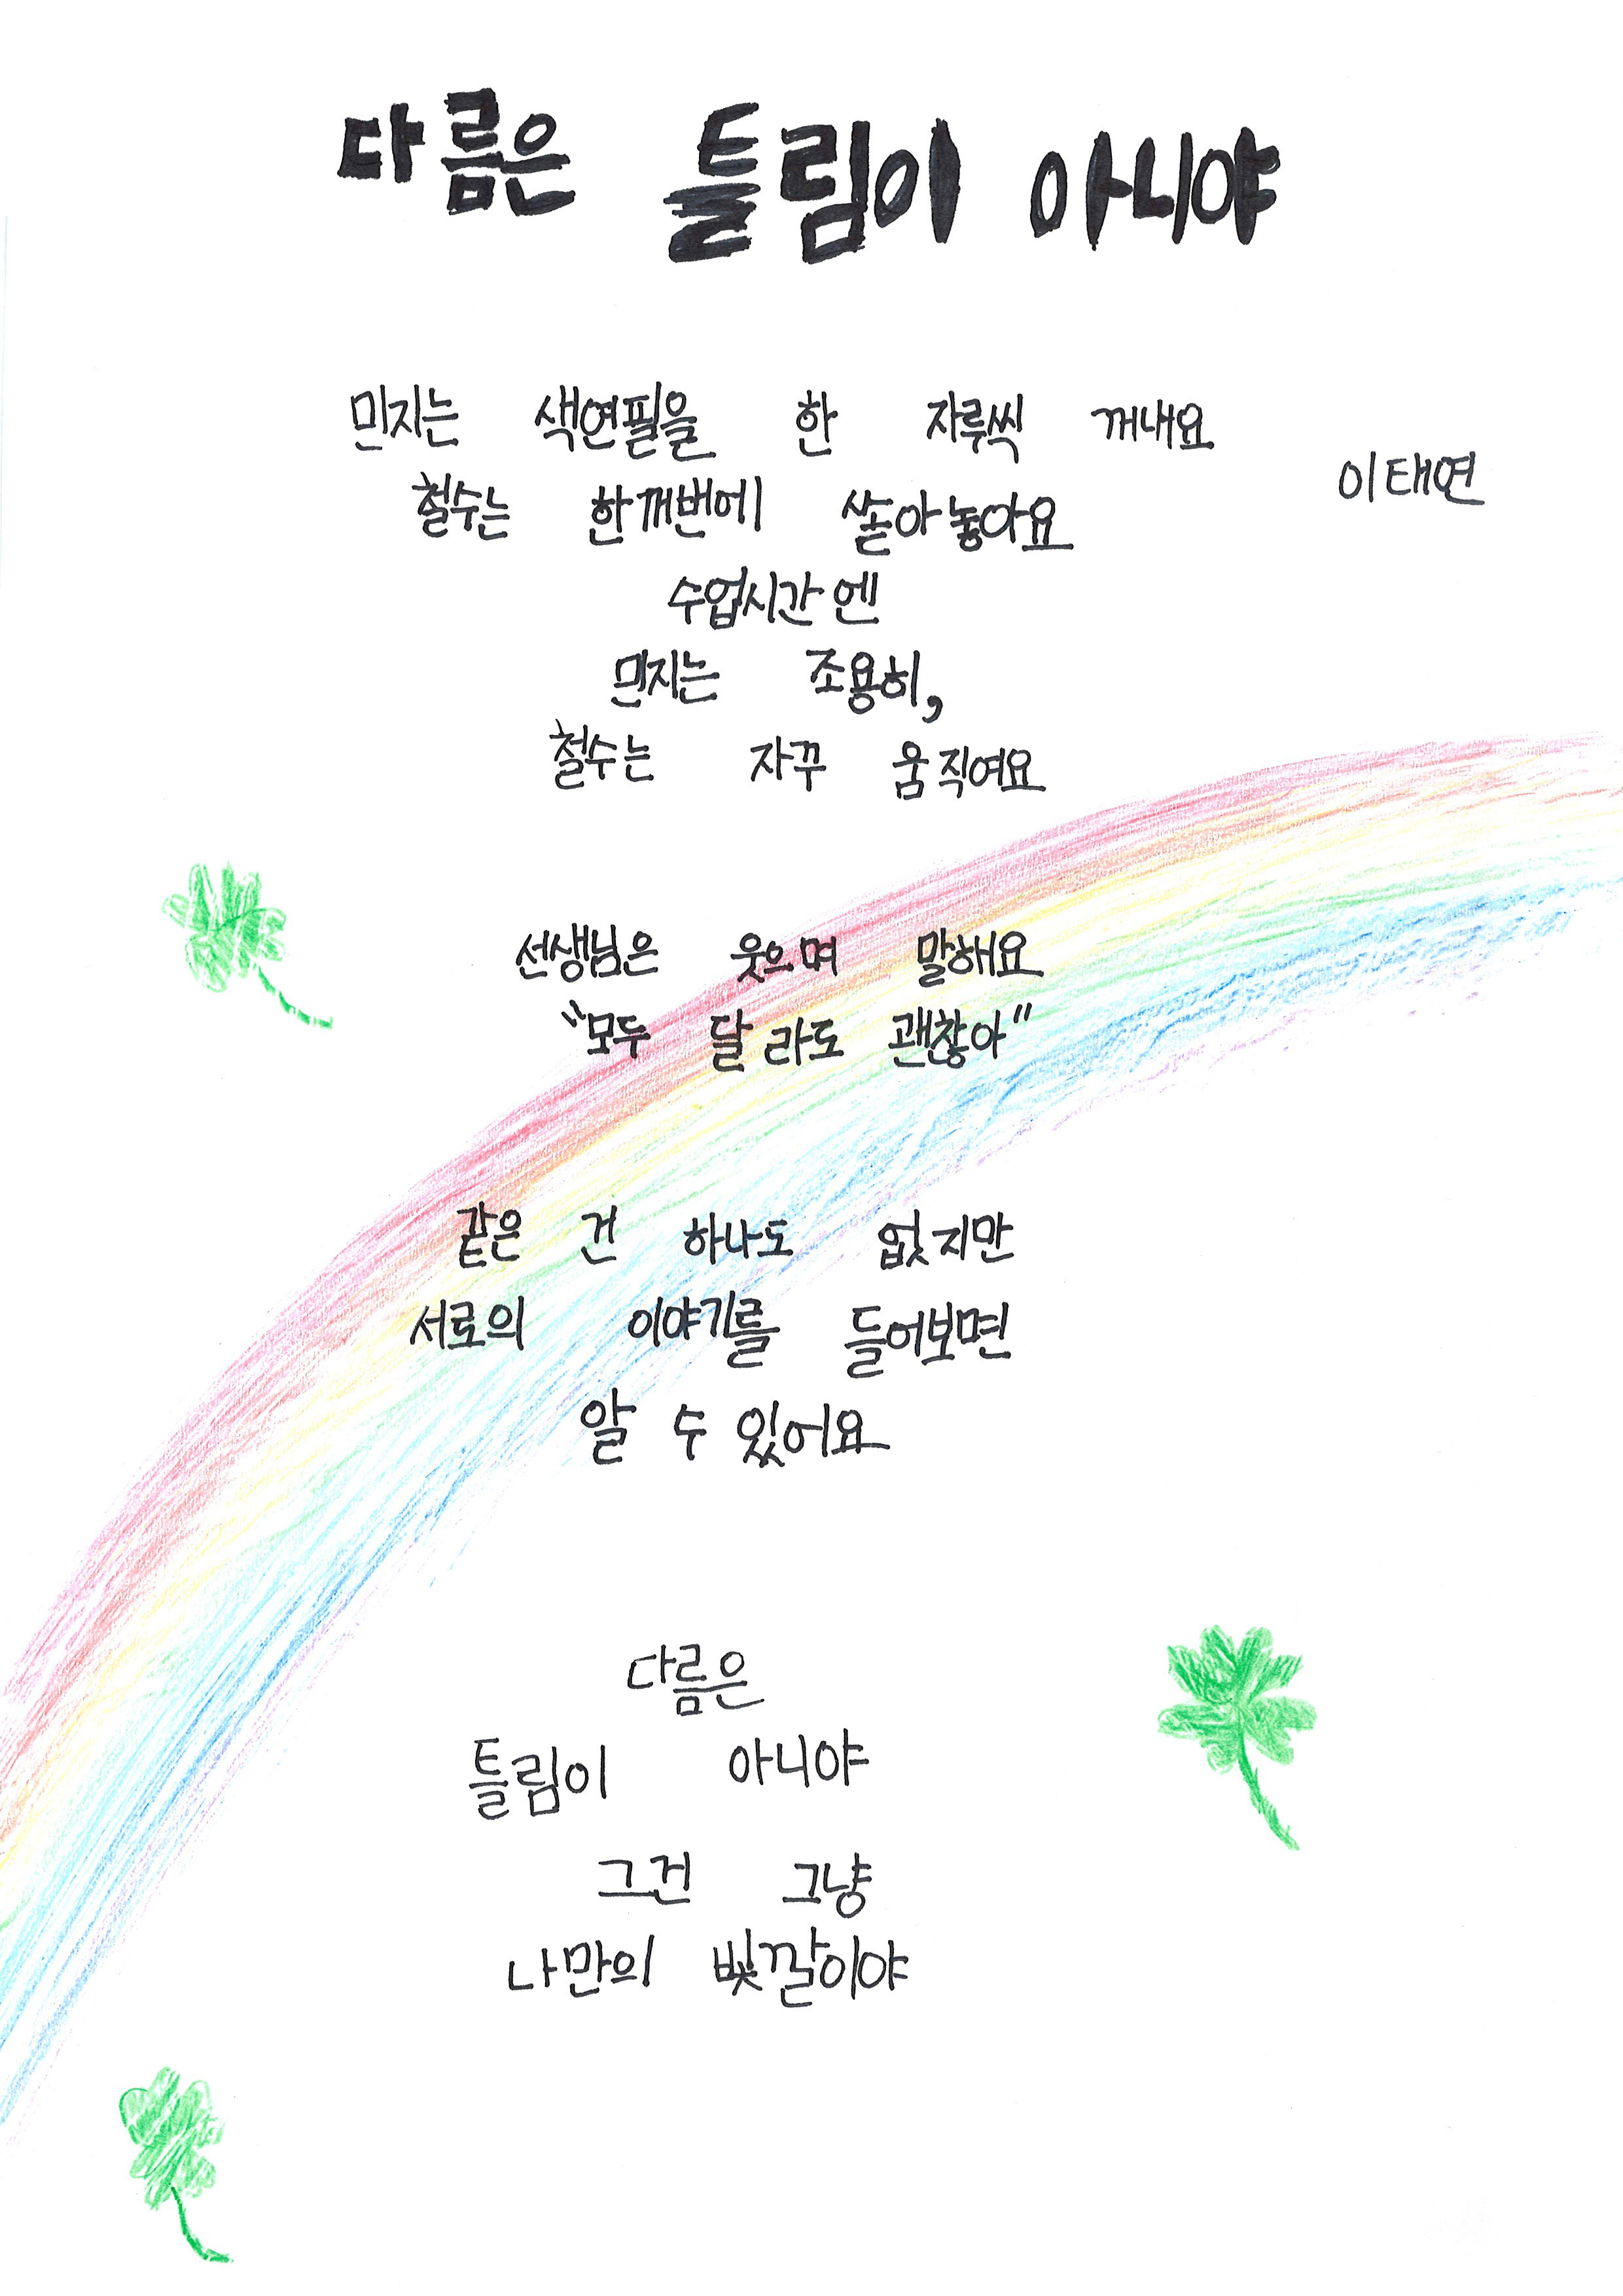 다름은 틀림이 아니야
이태연
민지는 색연필을 한 자루씩 꺼내요
철수는 한꺼번에 쏟아놓아요
수업시간엔
민지는 조용히,
철수는 자꾸 움직여요
선생님은 웃으며 말해요
"모두 달라도 괜찮아"
같은 건 하나도 없지만
서로의 이야기를 들어보면
알 수 있어요
다름은
틀림이 아니야
그건 그냥
나만의 빛깔이야